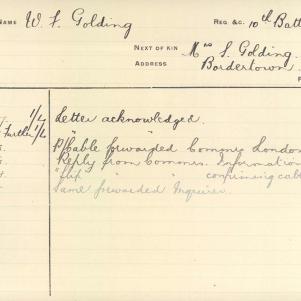 NAME W. F. Golding REG &C. 10th Batt
NEXT OF KIN Mrs F. Golding.
ADDRESS Bordertown.
1/4 Letter acknowledged.
Further 1/4 " "
P/Cable forwarded Commrs London
Reply from Commrs. Information
" " confirming cable
Same forwarded Inquirer